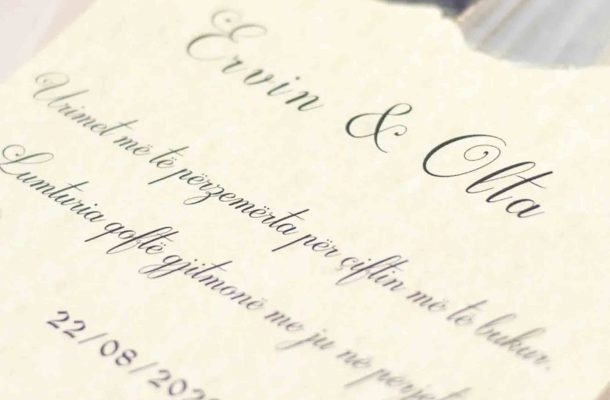 Ervin & Olta
Urimet më të përzemërta për çiftin më të bukur.
Lumturia qoftë gjitmonë me ju në përjet
22/08/202